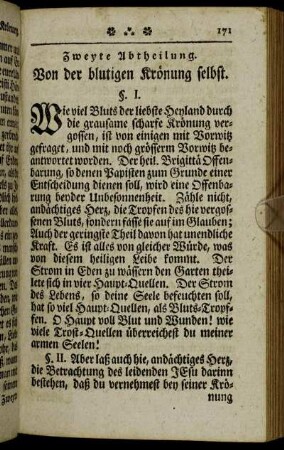 171
Zweyte Abtheilung.
Von der blutigen Krönung selbst.
§. I.
Wie viel Bluts der liebste Heyland durch
die grausame scharfe Krönung ver-
gossen, ist von einigen mit Vorwitz
gefraget, und mit noch grösserm Vorwitz be-
antwortet worden. Der heil. Brigittä Offen-
barung, so denen Papisten zum Grunde einer
Entscheidung dienen soll, wird eine Offenba-
rung beyder Unbesonnenheit. Zähle nicht,
andächtiges Herz, die Tropfen des hie vergos-
senen Bluts, sondern fasse sie auf im Glauben;
Auch der geringste Theil davon hat unendliche
Kraft. Es ist alles von gleicher Würde, was
von diesem heiligen Leibe kommt. Der
Strom in Eden zu wässern den Garten thei-
lete sich in vier Haupt-Quellen. Der Strom
des Lebens, so deine Seele befeuchten soll,
hat so viel Haupt-Quellen, als Bluts-Tropf-
fen. O Haupt voll Blut und Wunden! wie
viele Trost-Quellen überreichest du meiner
armen Seelen!
§. II. Aber laß auch hie, andächtiges Herz,
die Betrachtung des leidenden JEsu darinn
bestehen, daß du vernehmest bey seiner Krö-
nung